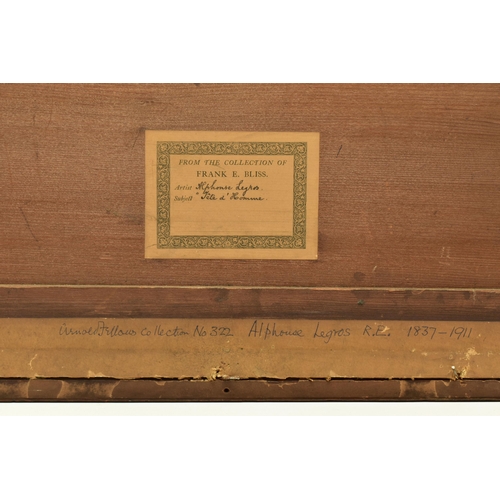 FROM THE COLLECTION OF
FRANK E. BLISS.
Artist Alphonse Legros.
Subject "Tête d'Homme.
Arnold Fellows Collection No 322 Alphonse Legros R.E. 1837-1911